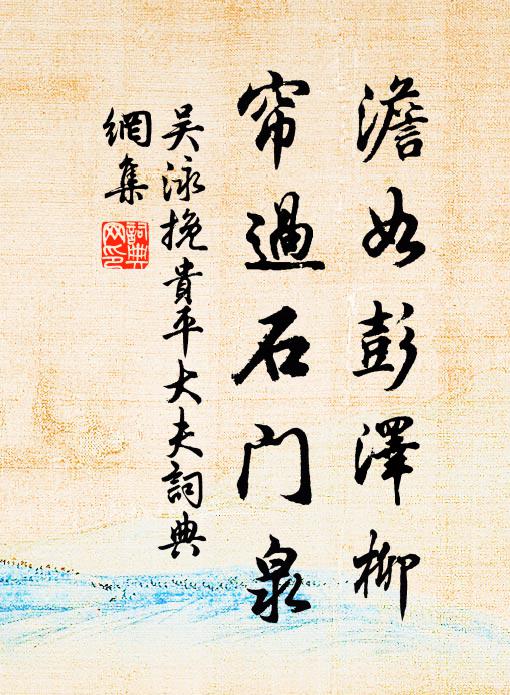 澹如彭澤柳
帘過石门泉
吴泳挽貴平大夫詞典
網集
詞典
网印